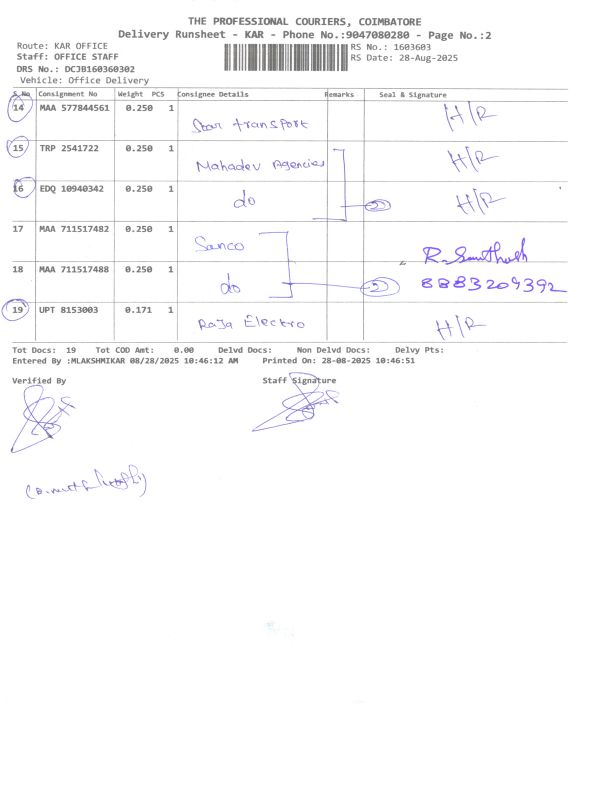 THE PROFESSIONAL COURIERS, COIMBATORE
Delivery Runsheet - KAR - Phone No.:9047080280 - Page No.:2
Route: KAR OFFICE RS No.: 1603603
Staff: OFFICE STAFF RS Date: 28-Aug-2025
DRS No.: DCJB160360302
Vehicle: Office Delivery
S.No Consignment No Weight PCS Consignee Details Remarks Seal & Signature
14 MAA 577844561 0.250 1 Star transport H/R
15 TRP 2541722 0.250 1 Mahadev Agencies H/R
16 EDQ 10940342 0.250 1 do 2 H/R
17 MAA 711517482 0.250 1 Sanco R. Santhosh
18 MAA 711517488 0.250 1 do 2 8883209392
19 UPT 8153003 0.171 1 Raja Electro H/R
Tot Docs: 19 Tot COD Amt: 0.00 Delvd Docs: Non Delvd Docs: Delvy Pts:
Entered By :MLAKSHMIKAR 08/28/2025 10:46:12 AM Printed On: 28-08-2025 10:46:51
Verified By Staff Signature